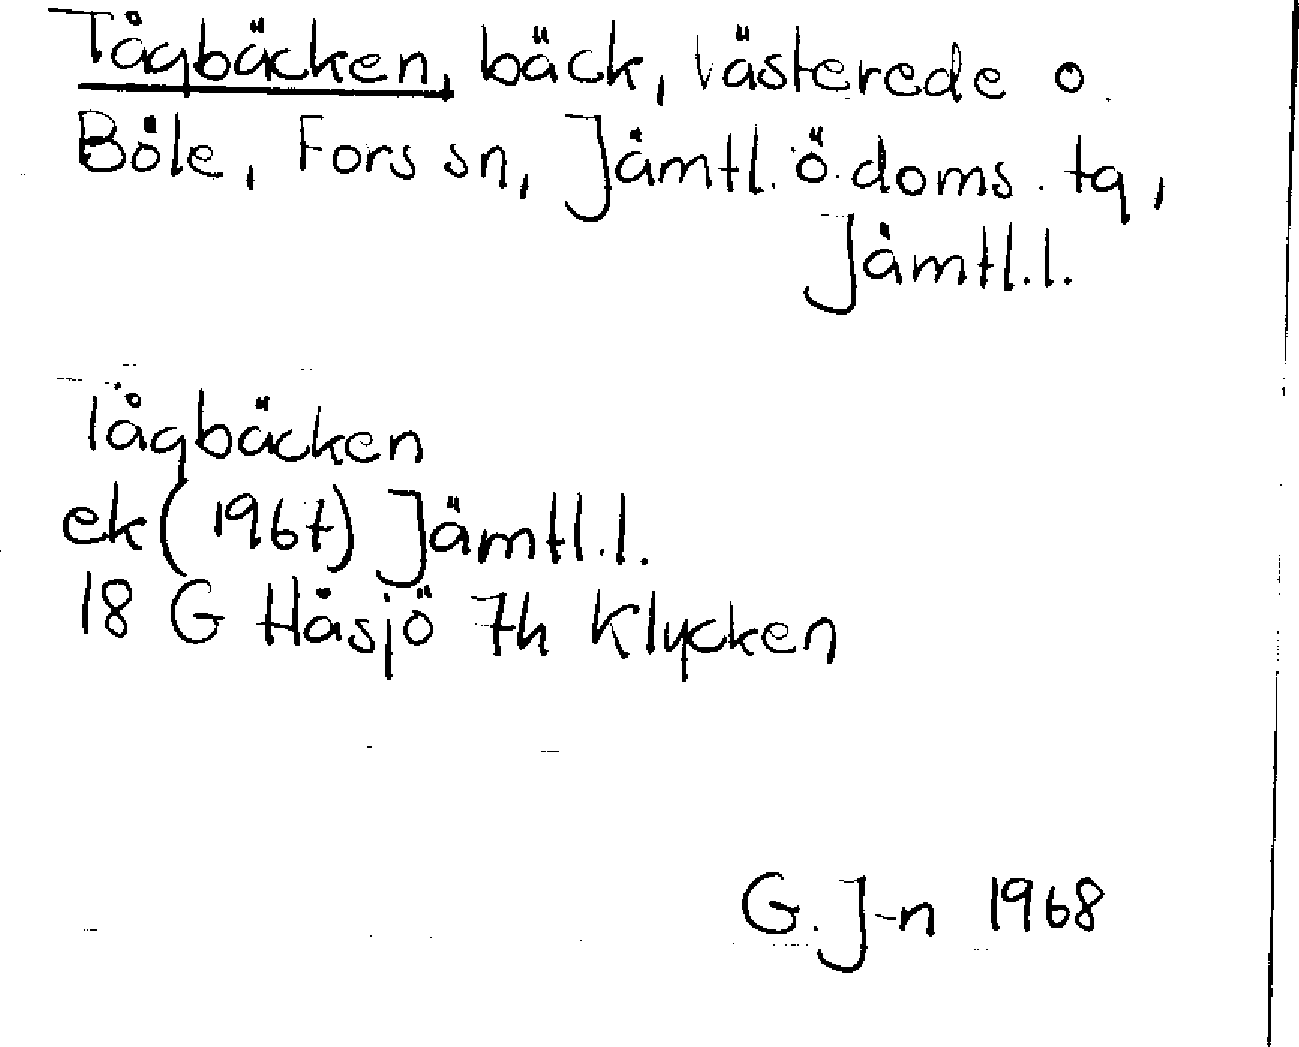 Tågbäcken, bäck, Västerede o.
Böle, Fors sn, Jämtl. ö. doms. tg,
Jämtl.l.
Tågbäcken
ek (1967) Jämtl.l.
18 G Håsjö 7h Klycken
G. J-n 1968